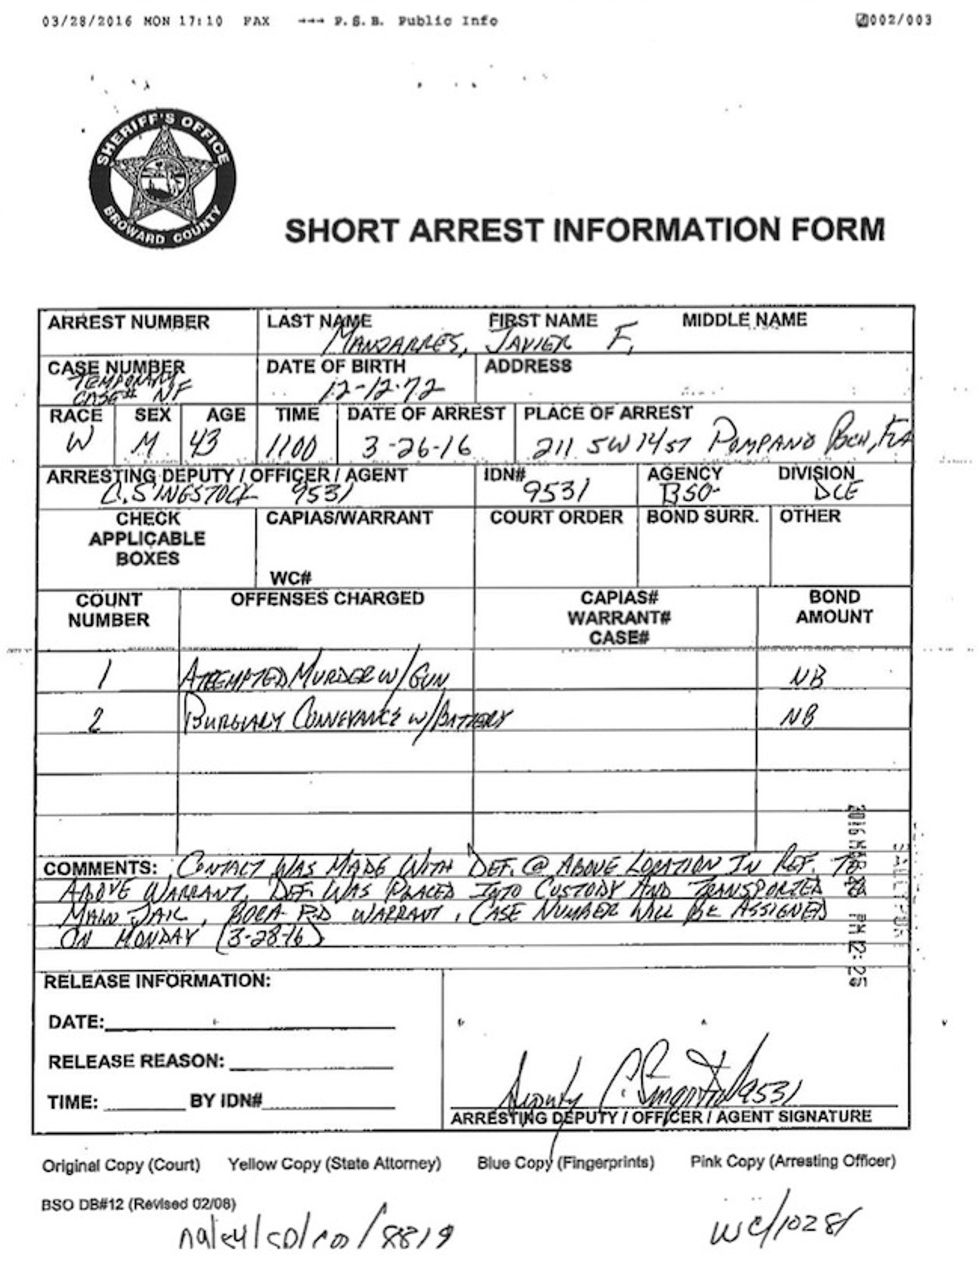 03/28/2016 MON 17:10 FAX ---> P.S.B. Public Info 002/003
SHERIFF'S OFFICE
BROWARD COUNTY
SHORT ARREST INFORMATION FORM
ARREST NUMBER LAST NAME FIRST NAME MIDDLE NAME
MANJARRES, JAVIER F.
CASE NUMBER DATE OF BIRTH ADDRESS
TEMPORARY
CASE# NF 12-12-72
RACE SEX AGE TIME DATE OF ARREST PLACE OF ARREST
W M 43 1100 3-26-16 211 SW 14 ST POMPANO BCH, FLA
ARRESTING DEPUTY / OFFICER / AGENT IDN# AGENCY DIVISION
C. SINGSTOCK 9531 9531 BSO DLE
CHECK APPLICABLE BOXES CAPIAS/WARRANT COURT ORDER BOND SURR. OTHER
WC#
COUNT NUMBER OFFENSES CHARGED CAPIAS# WARRANT# CASE# BOND AMOUNT
1 ATTEMPTED MURDER W/GUN NB
2 BURGLARY CONVEYANCE W/BATTERY NB
COMMENTS: CONTACT WAS MADE WITH DEF. @ ABOVE LOCATION IN REF. TO
ABOVE WARRANT. DEF. WAS PLACED INTO CUSTODY AND TRANSPORTED TO
MAIN JAIL, BOCA P.D WARRANT. CASE NUMBER WILL BE ASSIGNED
ON MONDAY (3-28-16)
2016 MAR 26 PM 12:25
RELEASE INFORMATION:
DATE:
RELEASE REASON:
TIME: BY IDN#
Deputy 9531
ARRESTING DEPUTY / OFFICER / AGENT SIGNATURE
Original Copy (Court) Yellow Copy (State Attorney) Blue Copy (Fingerprints) Pink Copy (Arresting Officer)
BSO DB#12 (Revised 02/08)
/8819 wc/10281